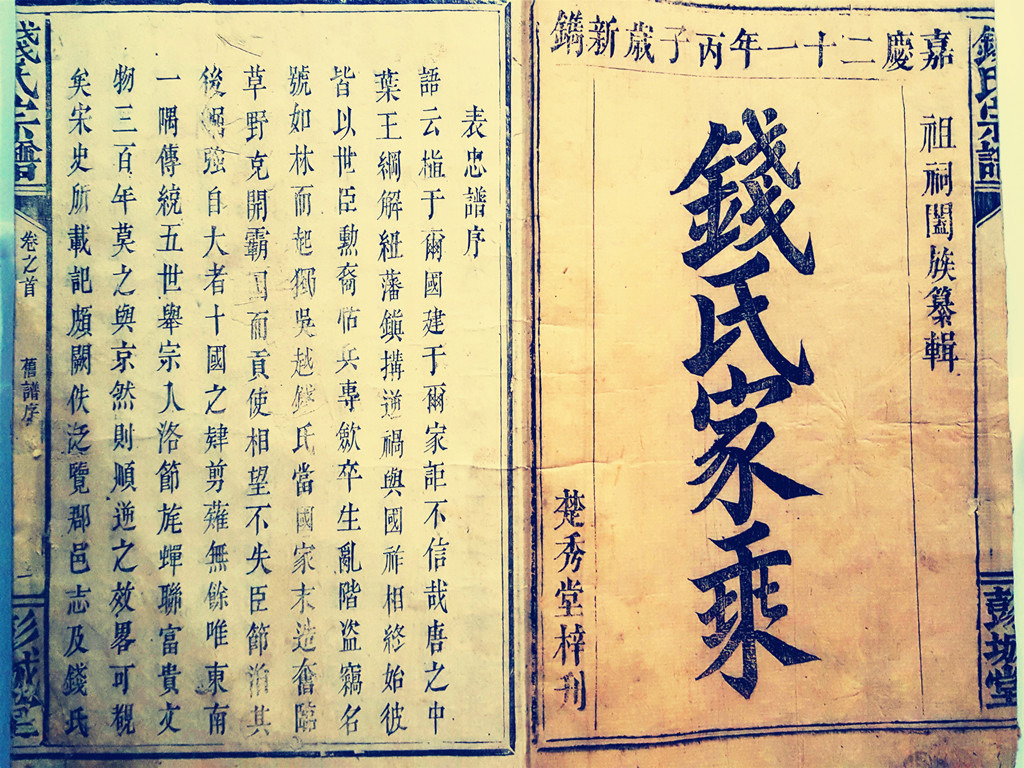 錢氏宗譜
彭城堂
嘉慶二十一年丙子歲新鐫
祖祠闔族纂輯
錢氏家乘
楚秀堂梓刊
表忠譜序
語云植于爾國建于爾家詎不信哉唐之中
葉王綱解紐藩鎮搆逆禍與國祚相終始彼
皆以世臣勲裔怙兵專斂卒生亂階盜竊名
號如林而起獨吳越錢氏當國家末造奮臨
草野克開霸國而貢使相望不失臣節洎其
後倔強自大者十國之肆剪薙無餘唯東南
一隅傳統五世舉宗人洛節旄蟬聯富貴文
物三百年莫之與京然則順逆之效畧可覩
矣宋史所載記頗闕佚泛覽郡邑志及錢氏
錢氏宗譜
卷之首
舊譜序
一
彭城堂